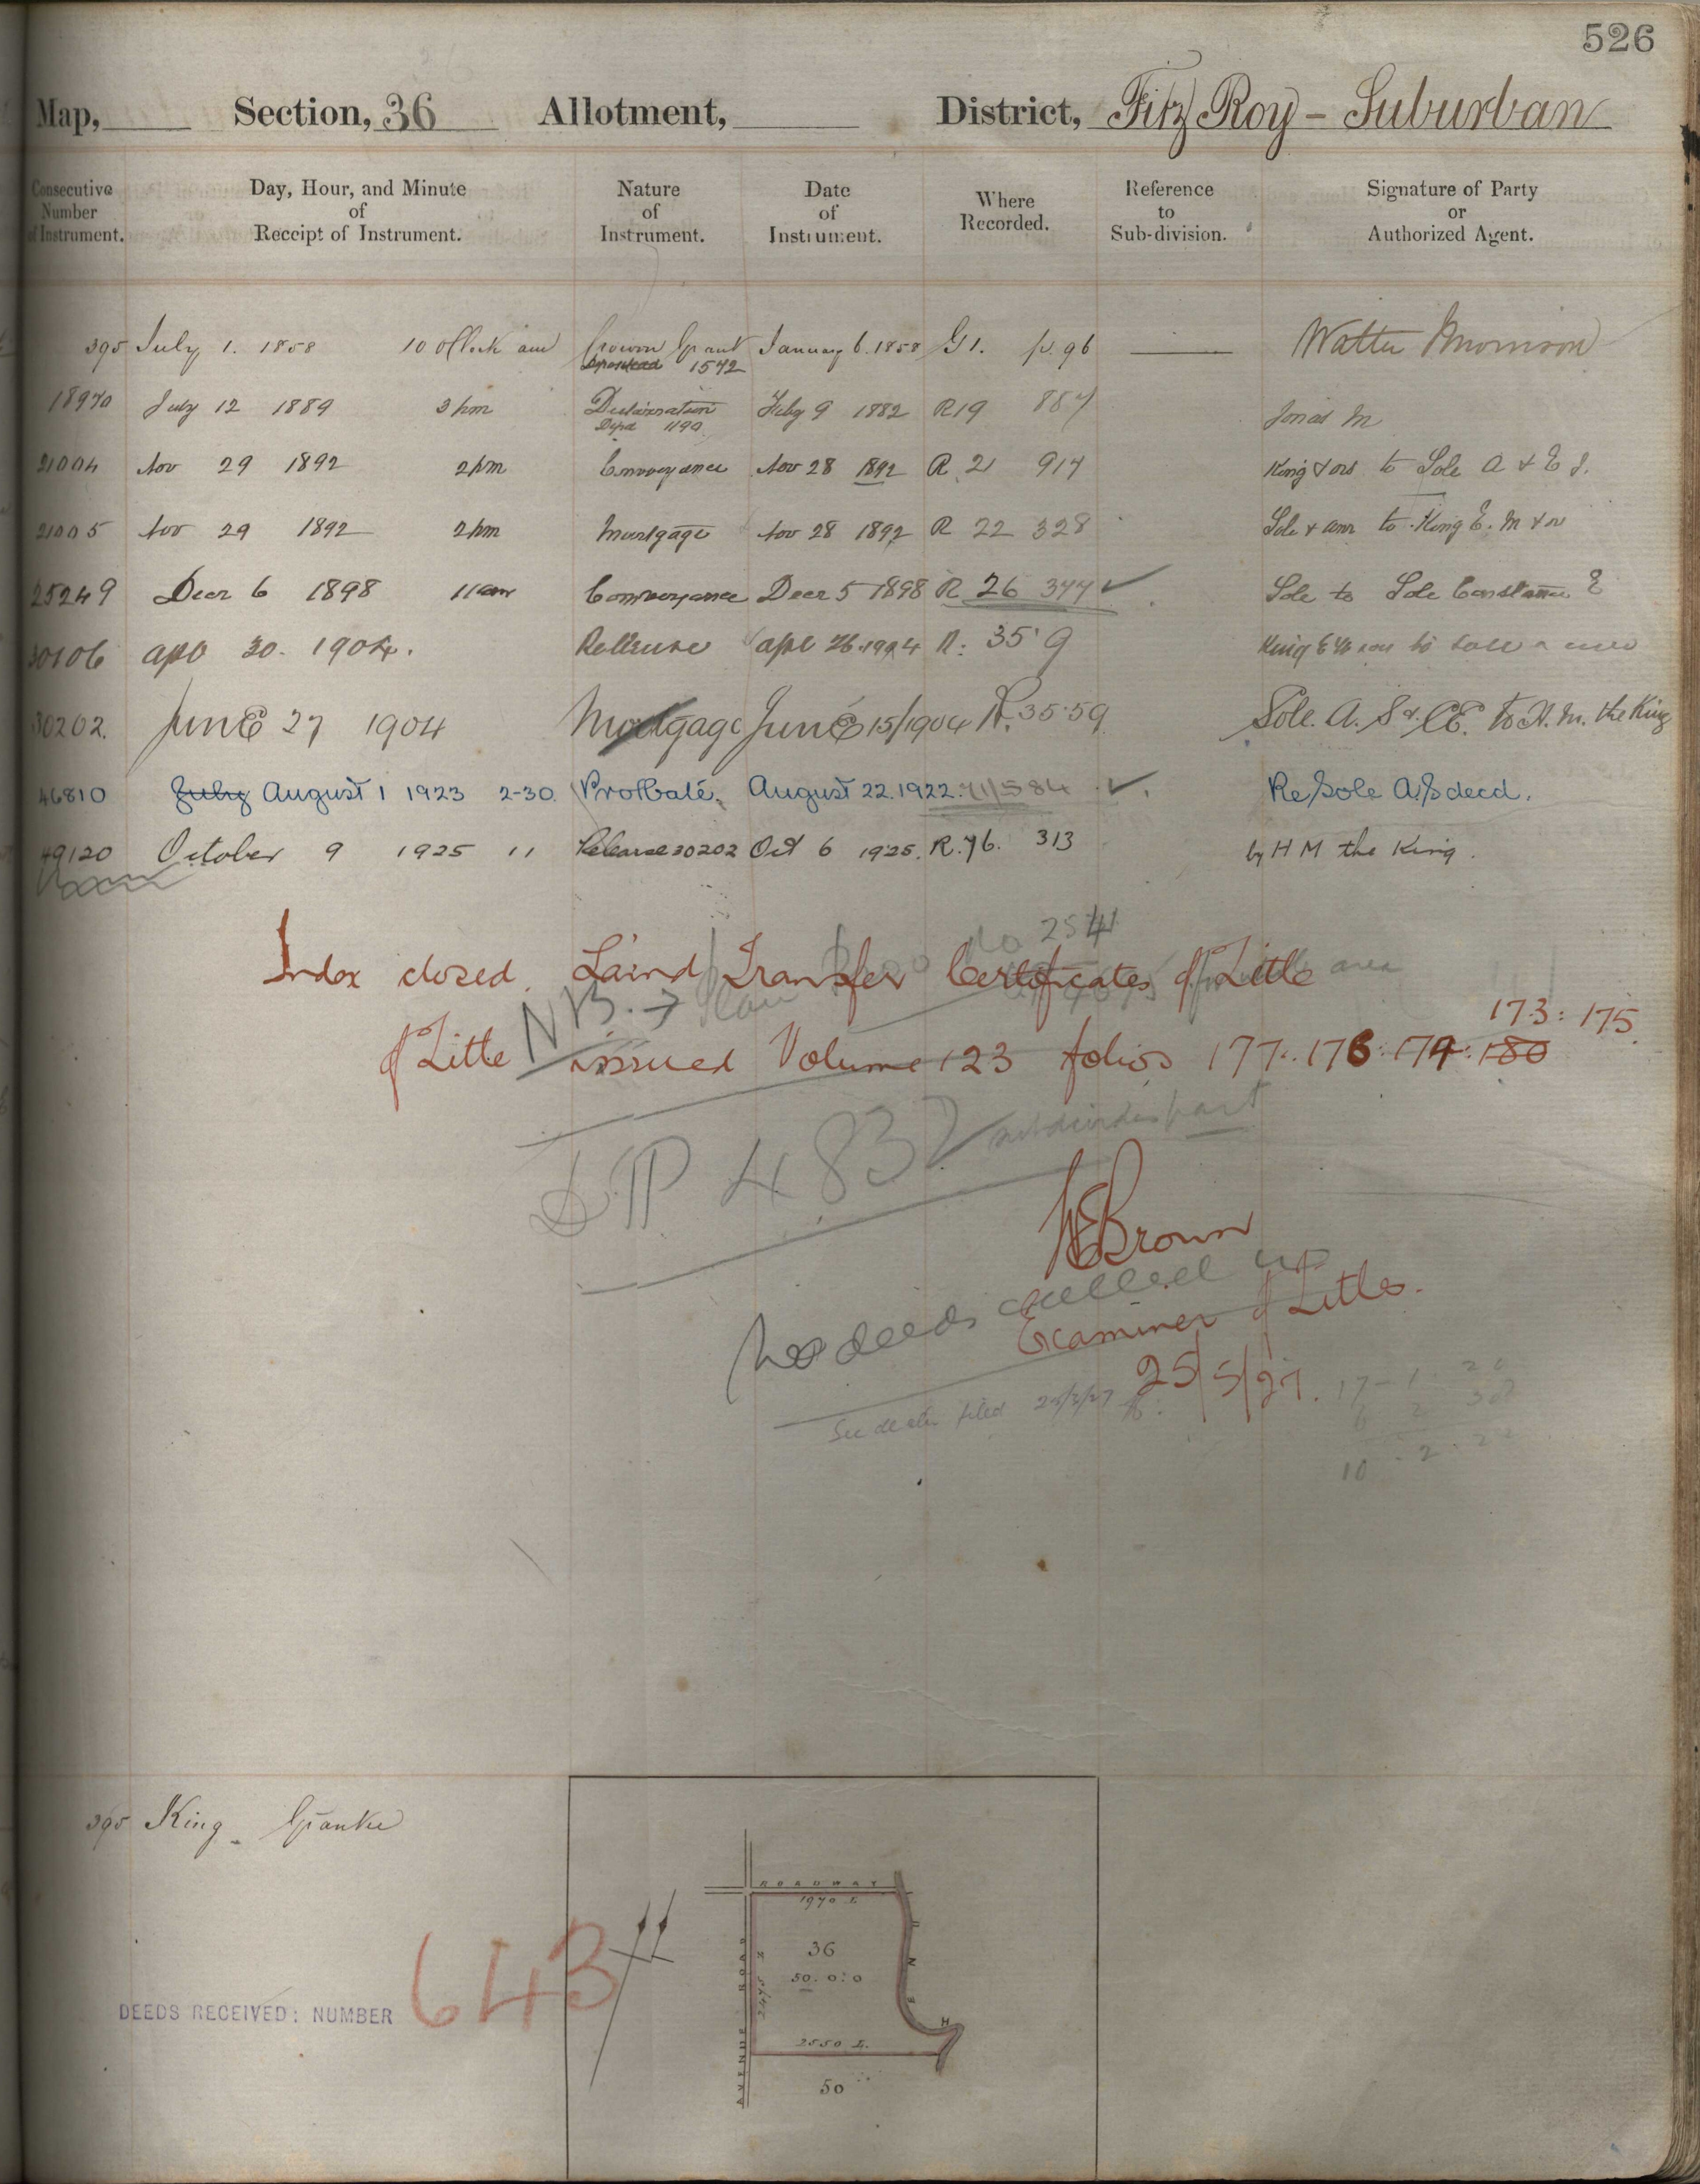 526
Map, Section, 36 Allotment, District, Fitz Roy - Suburban
Consecutive Number of Instrument. Day, Hour, and Minute of Receipt of Instrument. Nature of Instrument. Date of Instrument. Where Recorded. Reference to Sub-division. Signature of Party or Authorized Agent.
395 July 1. 1858 10 o'Clock am Crown Grant January 6. 1858 G1. p. 96 Walter Morrison
1572
18970 July 12 1889 3 pm Declaration Feby 9 1882 R19 887 Jonas M
Depd 1190
21004 Nov 29 1892 2pm Conveyance Nov 28 1892 R 21 917 King & ors to Sole A & E J.
21005 Nov 29 1892 2pm Mortgage Nov 28 1892 R 22 328 Sole & anr to King E. M & or
25249 Decr 6 1898 11am Conveyance Decr 5 1898 R 26 377 Sole to Sole Constance E
30106 Apr 30. 1904. Release Apl 26. 1904 R. 35 9 King
30202. June 27 1904 Mortgage June 15/1904 R. 35.59 Sole. A. S & CE. to H. M. the King
46810 July August 1 1923 2-30. Probate. August 22. 1922. 41/584 Re Sole A S decd.
49120 October 9 1925 11 Release 30202 Oct 6 1925. R. 46. 313 by H M the King.
No 254
Index closed. Land Transfer Certificates of Title area
NB. → Plan
173: 175
of Title issued Volume 123 folios 177. 176. 179. 180
DP 4832 subdivides part
WEBrown
No deeds called up
Examiner of Titles.
25/5/27.
17 - 1 - 20
See filed 25/3/27
6 2 38
10 - 2 - 22
395 King - Grantee
ROADWAY
1970 L
36
50. 0: 0
AVENUE ROAD
2475 L
2550 L.
HENUI
50
DEEDS RECEIVED: NUMBER 643